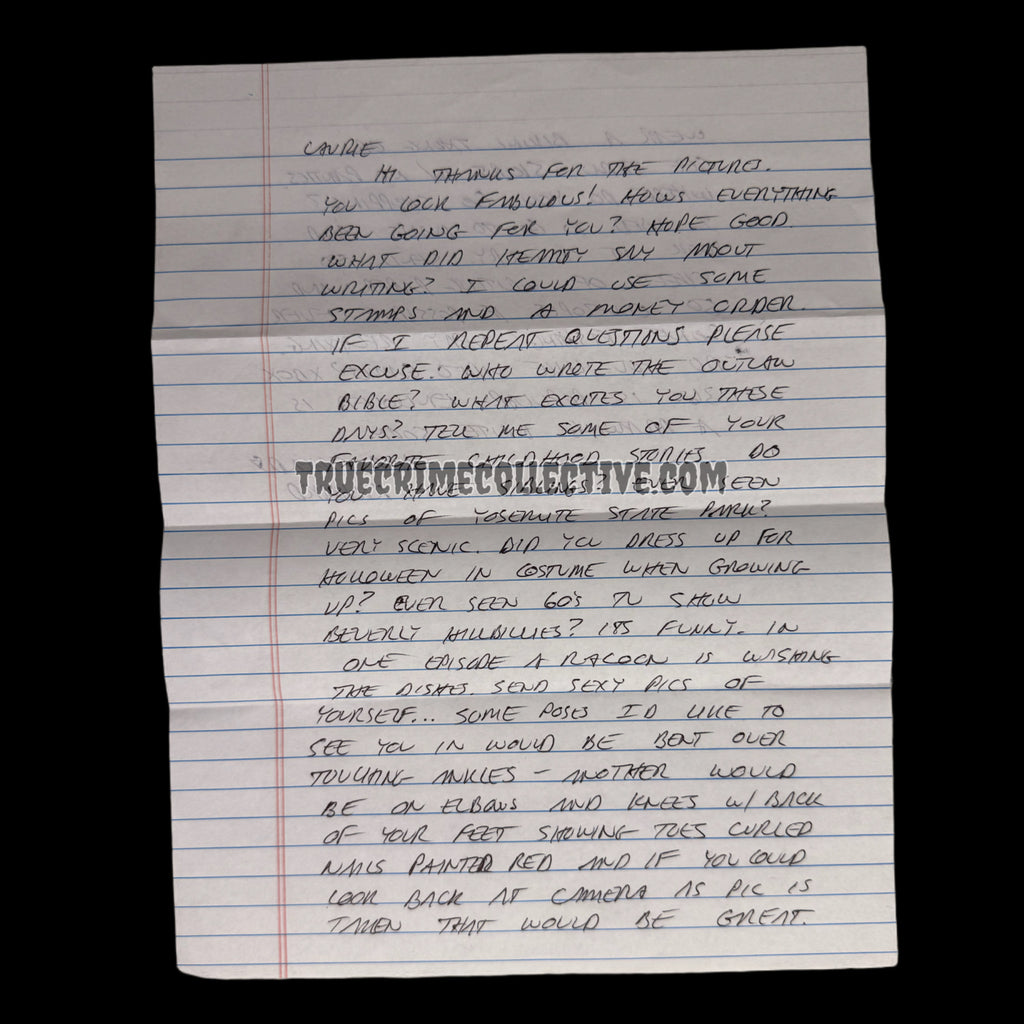 LAURIE
HI THANKS FOR THE PICTURES.
YOU LOOK FABULOUS! HOWS EVERYTHING
BEEN GOING FOR YOU? HOPE GOOD.
WHAT DID SAY ABOUT
WRITING? I COULD USE SOME
STAMPS AND A MONEY ORDER.
IF I REPEAT QUESTIONS PLEASE
EXCUSE. WHO WROTE THE OUTLAW
BIBLE? WHAT EXCITES YOU THESE
DAYS? TELL ME SOME OF YOUR
FAVORITE CHILDHOOD STORIES DO
TRUECRIMECOLLECTIVE.COM
YOU HAVE SIBLINGS? EVER SEEN
PICS OF YOSEMITE STATE PARK?
VERY SCENIC. DID YOU DRESS UP FOR
HOLLOWEEN IN COSTUME WHEN GROWING
UP? EVER SEEN 60'S TV SHOW
BEVERLY HILLBILLIES? ITS FUNNY. IN
ONE EPISODE A RACOON IS WASHING
THE DISHES. SEND SEXY PICS OF
YOURSELF... SOME POSES ID LIKE TO
SEE YOU IN WOULD BE BENT OVER
TOUCHING ANKLES - ANOTHER WOULD
BE ON ELBOWS AND KNEES W/ BACK
OF YOUR FEET SHOWING TOES CURLED
NAILS PAINTED RED AND IF YOU COULD
LOOK BACK AT CAMERA AS PIC IS
TAKEN THAT WOULD BE GREAT.